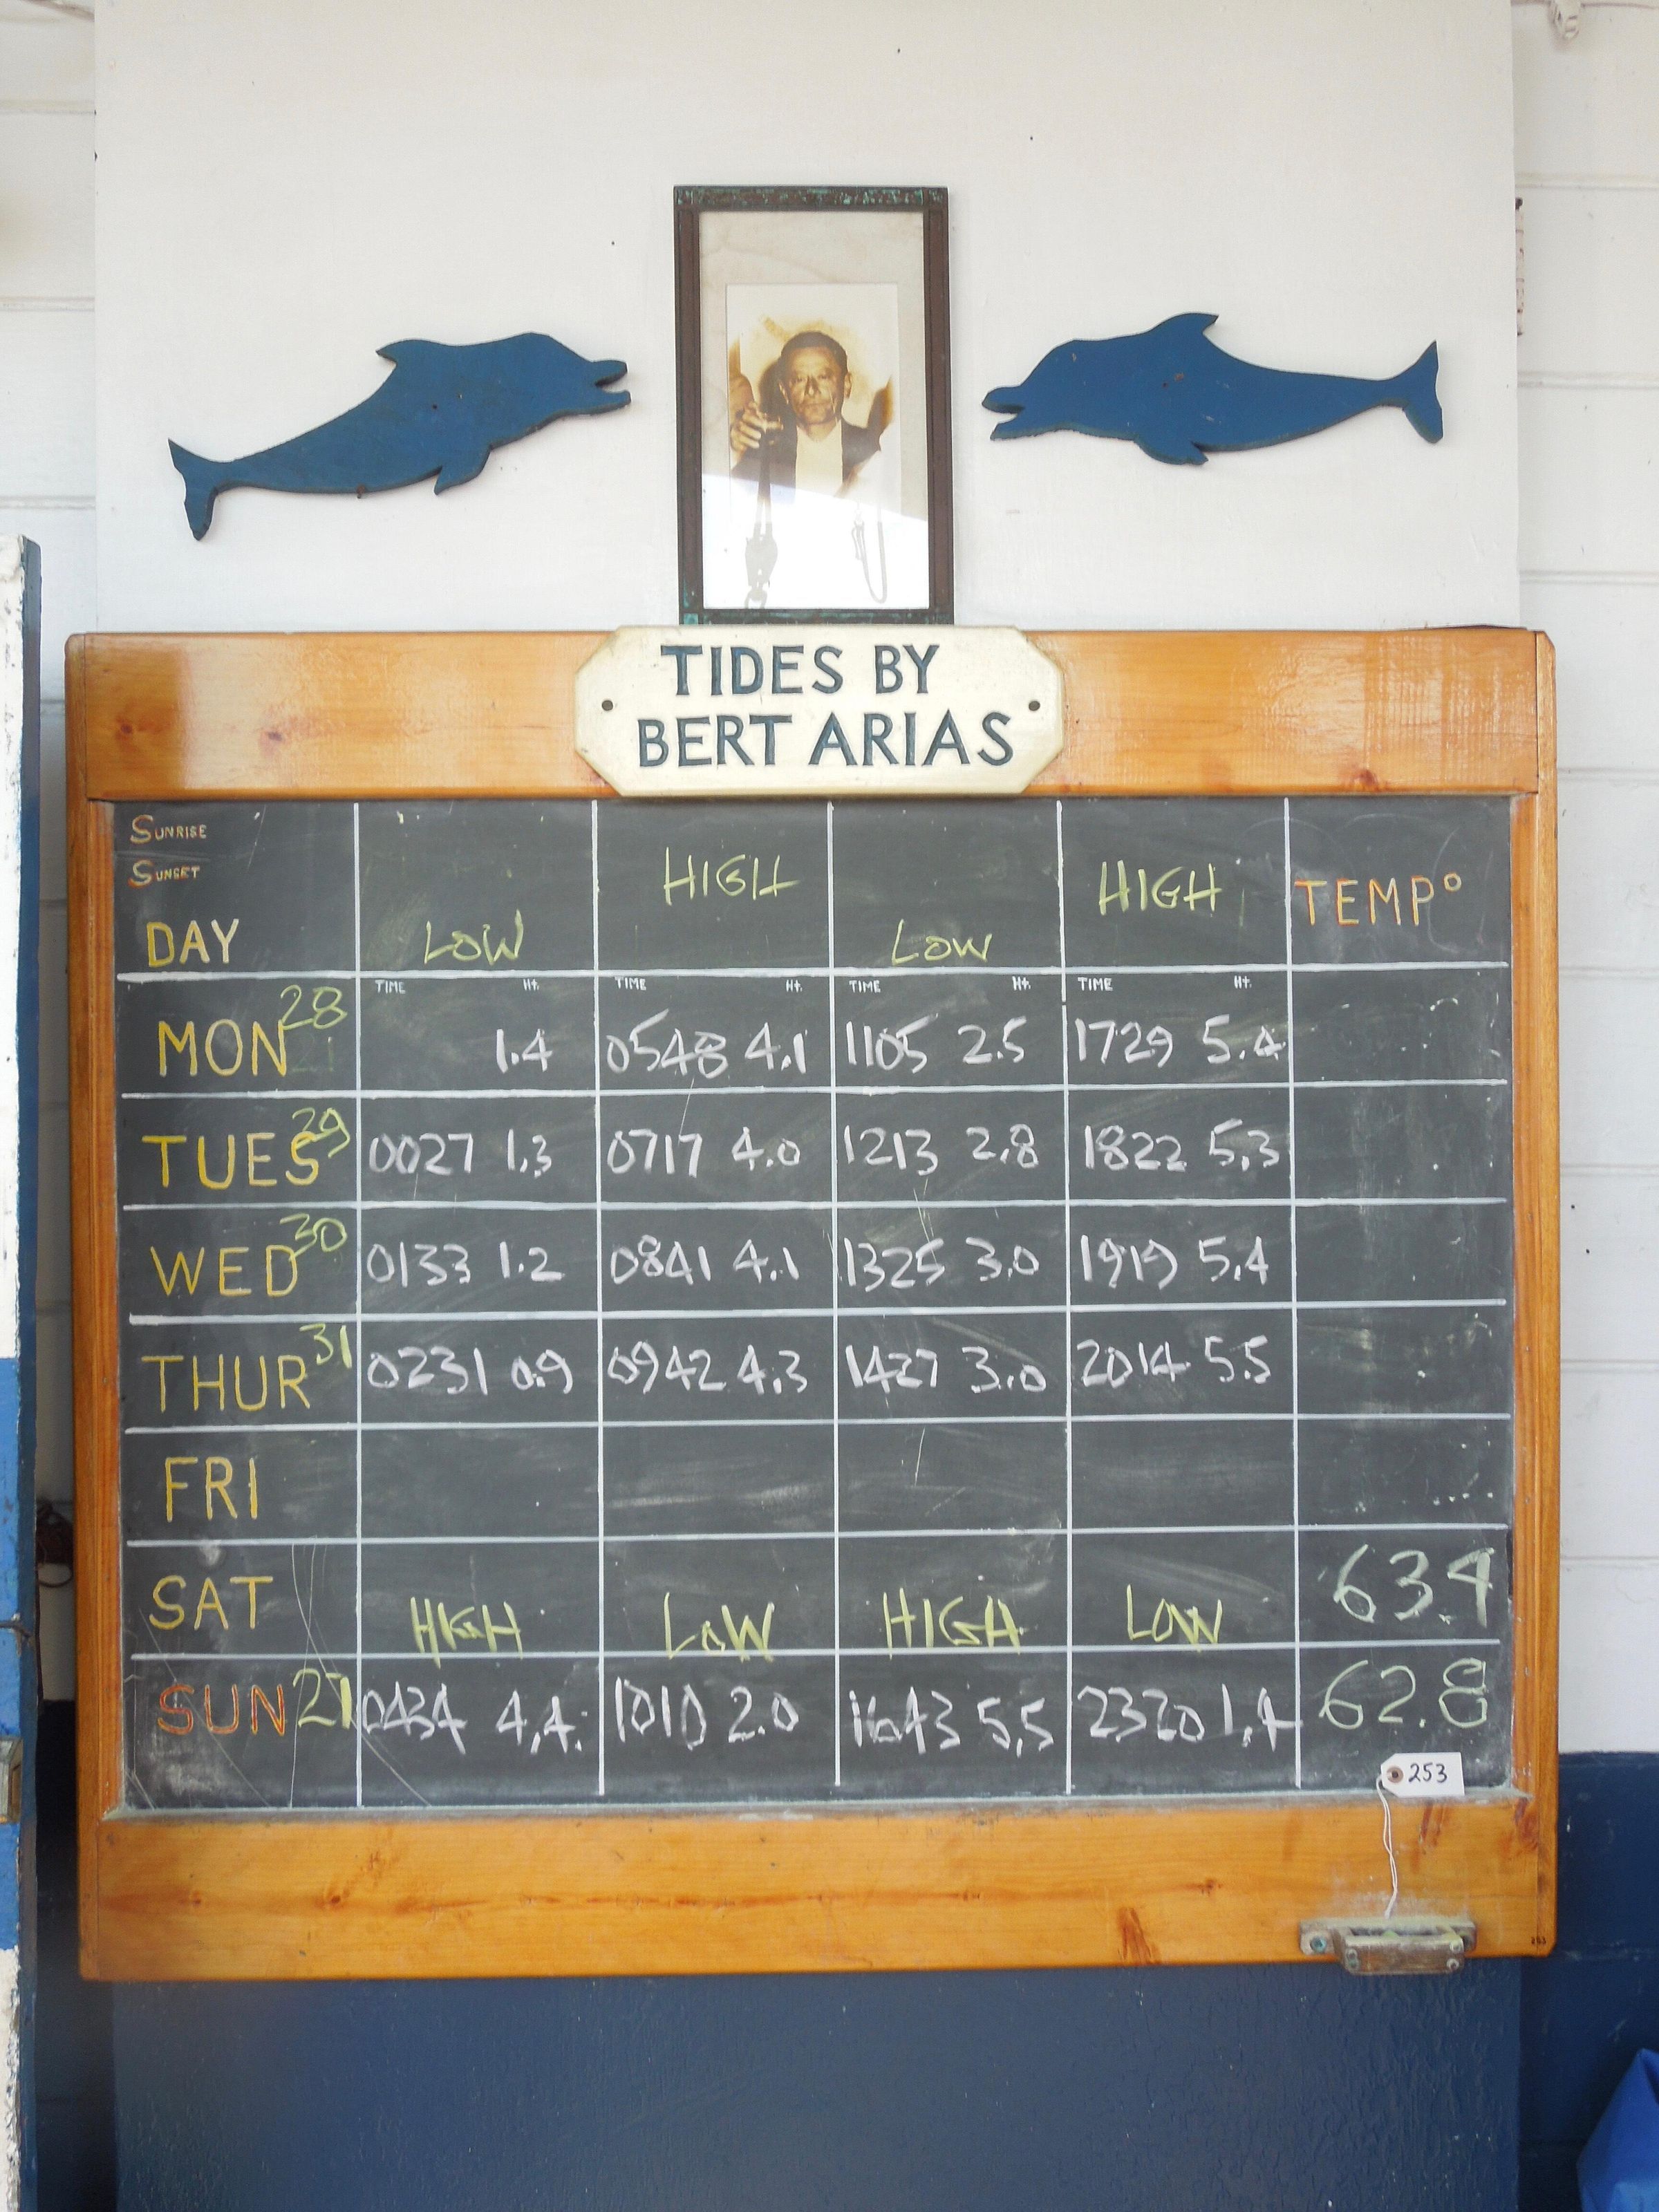 TIDES BY
BERT ARIAS
SUNRISE
SUNSET
DAY LOW HIGH LOW HIGH TEMP°
TIME Ht. TIME Ht. TIME Ht. TIME Ht.
MON 28 1.4 0548 4.1 1105 2.5 1729 5.4
TUES 29 0027 1.3 0717 4.0 1213 2.8 1822 5.3
WED 30 0133 1.2 0841 4.1 1325 3.0 1919 5.4
THUR 31 0231 0.9 0942 4.3 1427 3.0 2014 5.5
FRI
SAT HIGH LOW HIGH LOW 63.4
SUN 27 0434 4.4 1010 2.0 1643 5.5 2320 1.4 62.8
253
253